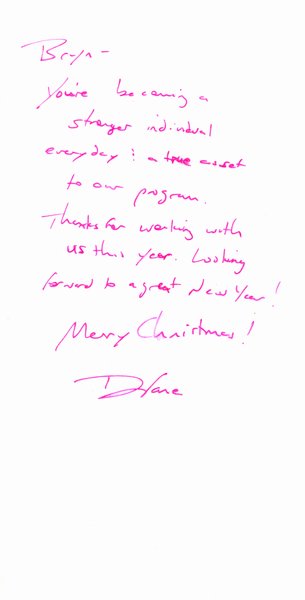 Bryn-
You're becoming a
stronger individual
everyday & a true asset
to our program.
Thanks for working with
us this year. Looking
forward to a great New Year!
Merry Christmas!